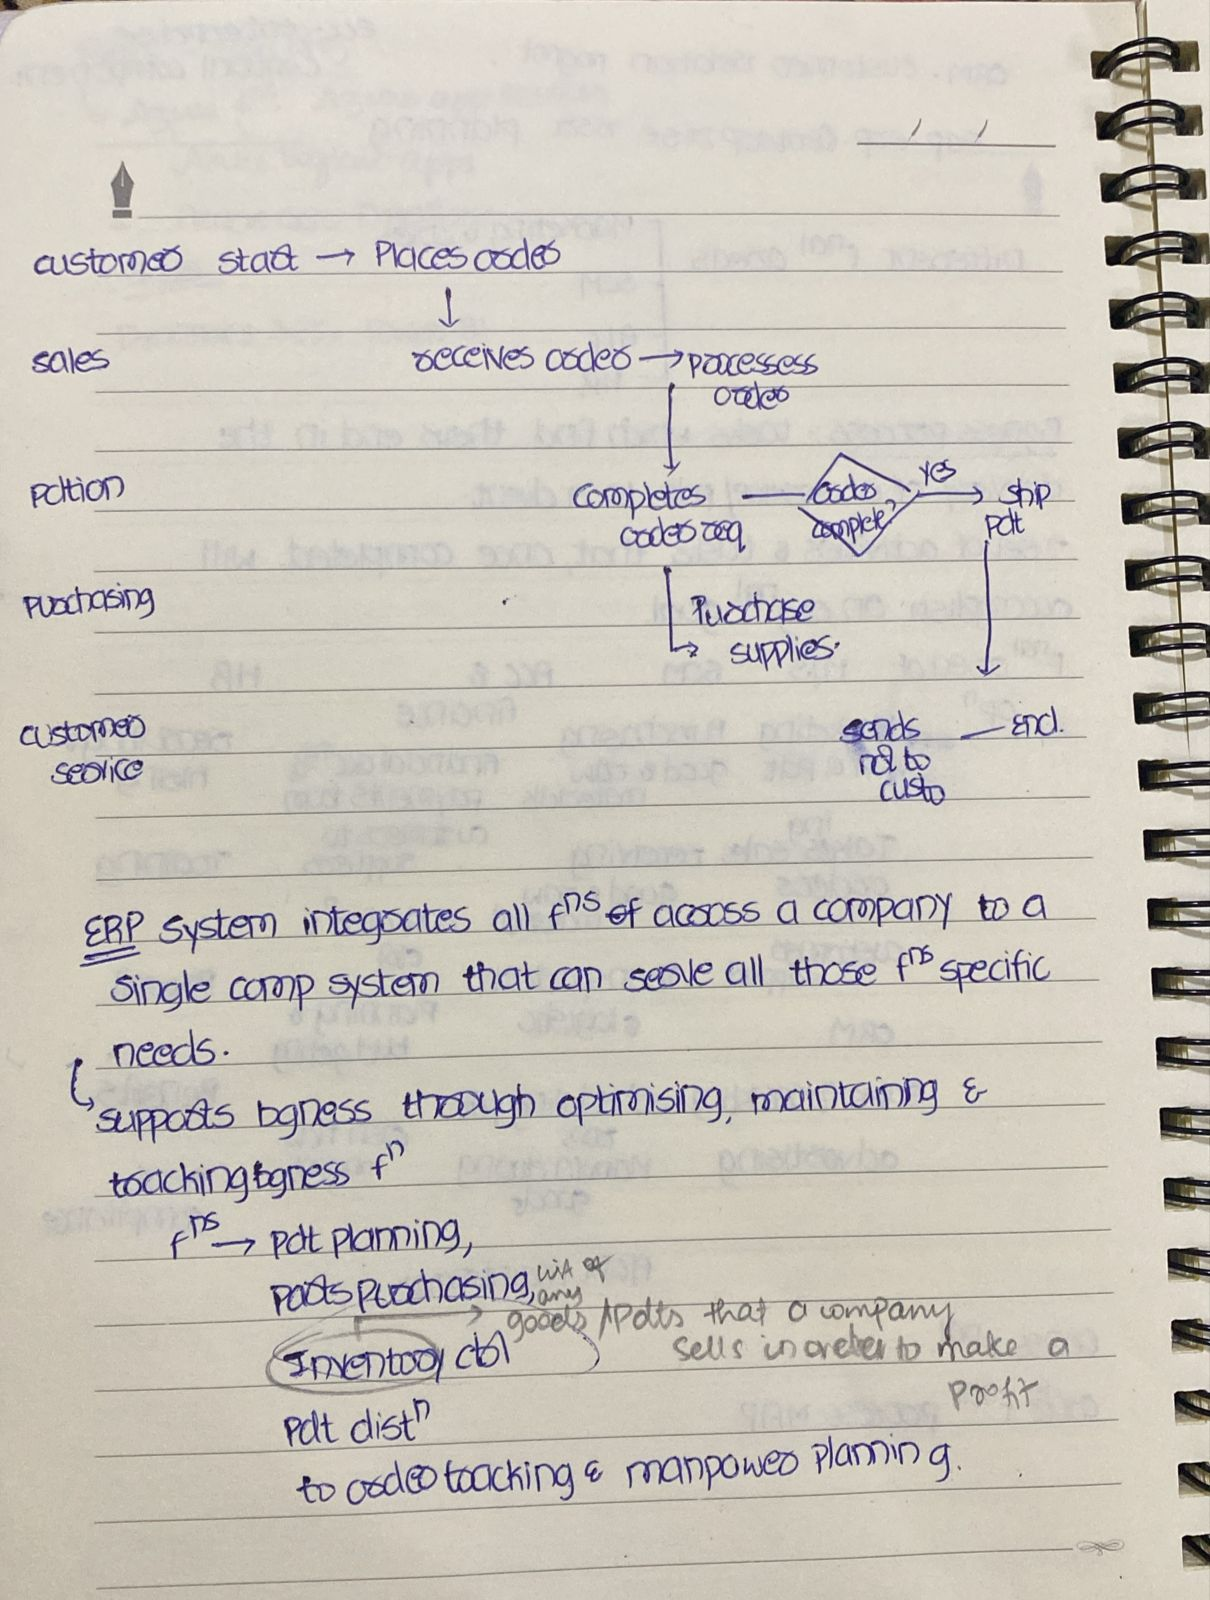 / /
customer start → Places order
↓
sales receives order → processess
order
Pdtion completes — order complete? yes → ship
order req pdt
Purchasing Purchase
↳ supplies.
customer sends — End.
service not to
custo
ERP system integrates all fⁿˢ of across a company to a
single comp system that can serve all those fⁿˢ specific
needs.
↳ supports bgness through optimising, maintaining &
tracking bgness fⁿ
fⁿˢ → Pdt planning,
Parts purchasing, list of
any
goods / Pdts that a company
Inventory ctrl sells in order to make a
profit
Pdt distⁿ
to order tracking & manpower planning.